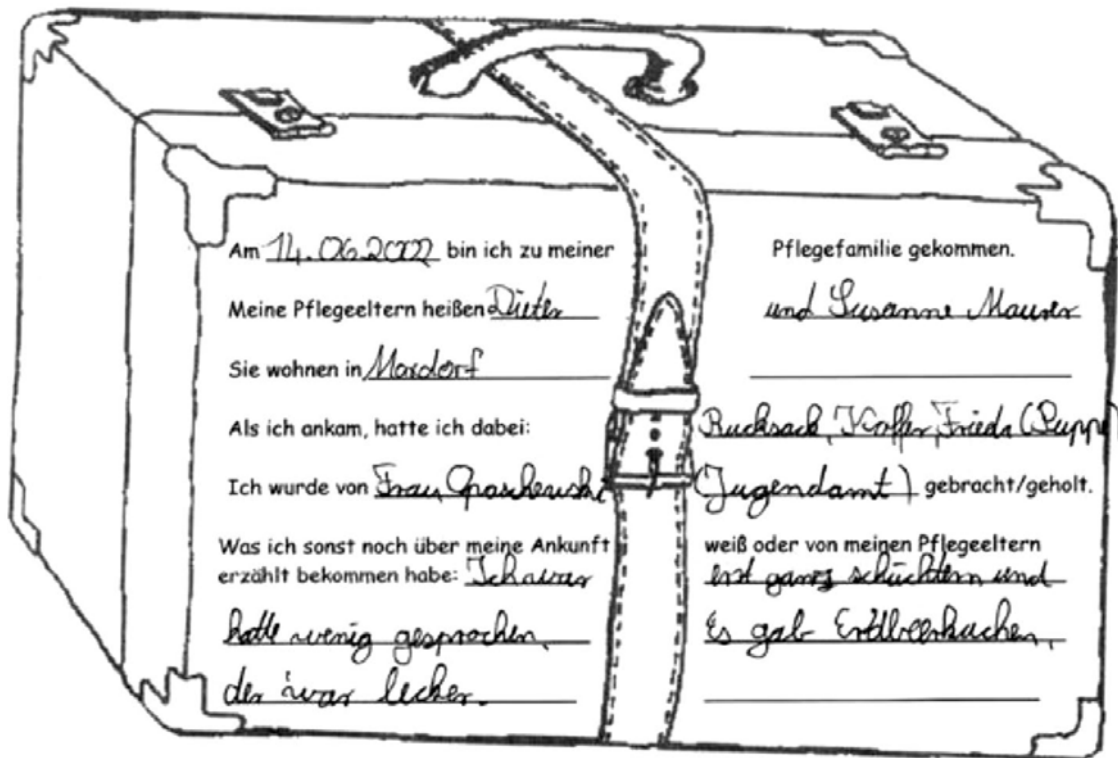 Am 14.06.2002 bin ich zu meiner Pflegefamilie gekommen.
Meine Pflegeeltern heißen Dieter und Susanne Maurer
Sie wohnen in Mordorf
Als ich ankam, hatte ich dabei: Rucksack, Koffer, Frieda (Puppe)
Ich wurde von Frau (Jugendamt) gebracht/geholt.
Was ich sonst noch über meine Ankunft weiß oder von meinen Pflegeeltern
erzählt bekommen habe: Ich war erst ganz schüchtern und
hatte wenig gesprochen, Es gab Erdbeerkuchen,
der war lecker.